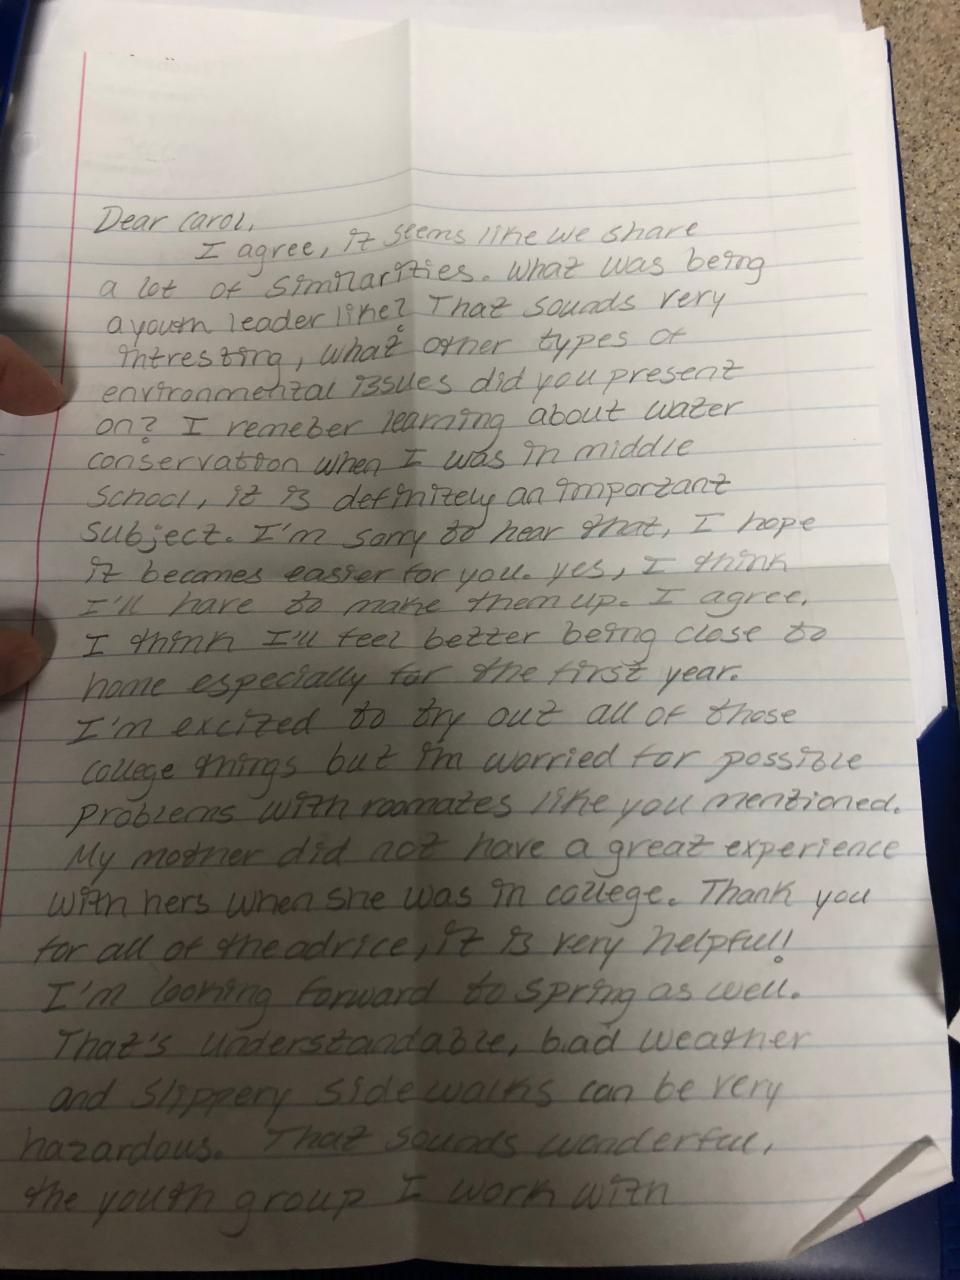 Dear Carol,
I agree, it seems like we share
a lot of similarities. What was being
a youth leader like? That sounds very
intresting, what other types of
environmental issues did you present
on? I remeber learning about water
conservation when I was in middle
school, it is definitely an important
subject. I'm sorry to hear that, I hope
it becomes easier for you. yes, I think
I'll have to make them up. I agree,
I think I'll feel better being close to
home especially for the first year.
I'm excited to try out all of those
college things but i'm worried for possible
problems with roomates like you mentioned.
My mother did not have a great experience
with hers when she was in college. Thank you
for all of the advice, it is very helpful!
I'm looking forward to spring as well.
That's understandable, bad weather
and slippery sidewalks can be very
hazardous. That sounds wonderful,
the youth group I work with